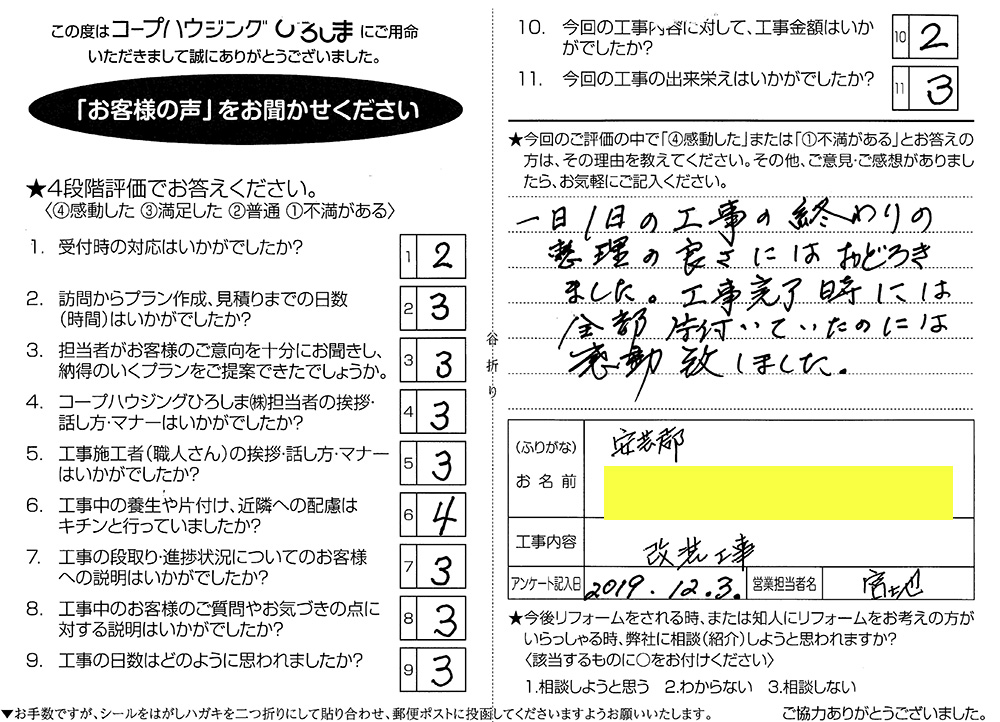 この度はコープハウジングひろしまにご用命
いただきまして誠にありがとうございました。
「お客様の声」をお聞かせください
★4段階評価でお答えください。
〈④感動した ③満足した ②普通 ①不満がある〉
1. 受付時の対応はいかがでしたか? 1 2
2. 訪問からプラン作成、見積りまでの日数
(時間)はいかがでしたか? 2 3
3. 担当者がお客様のご意向を十分にお聞きし、
納得のいくプランをご提案できたでしょうか。 3 3
4. コープハウジングひろしま㈱担当者の挨拶・
話し方・マナーはいかがでしたか? 4 3
5. 工事施工者(職人さん)の挨拶・話し方・マナー
はいかがでしたか? 5 3
6. 工事中の養生や片付け、近隣への配慮は
キチンと行っていましたか? 6 4
7. 工事の段取り・進捗状況についてのお客様
への説明はいかがでしたか? 7 3
8. 工事中のお客様のご質問やお気づきの点に
対する説明はいかがでしたか? 8 3
9. 工事の日数はどのように思われましたか? 9 3
▼お手数ですが、シールをはがしハガキを二つ折りにして貼り合わせ、郵便ポストに投函してくださいますようお願いいたします。
谷折り
10. 今回の工事内容に対して、工事金額はいか
がでしたか? 10 2
11. 今回の工事の出来栄えはいかがでしたか? 11 3
★今回のご評価の中で「④感動した」または「①不満がある」とお答えの
方は、その理由を教えてください。その他、ご意見・ご感想がありまし
たら、お気軽にご記入ください。
一日1日の工事の終わりの
整理の良さにはおどろき
ました。工事完了時には
全部片付いていたのには
感動致しました。
(ふりがな)
お名前
安芸郡
工事内容 改装工事
アンケート記入日 2019.12.3. 営業担当者名 宮地
★今後リフォームをされる時、または知人にリフォームをお考えの方が
いらっしゃる時、弊社に相談(紹介)しようと思われますか?
〈該当するものに○をお付けください〉
1.相談しようと思う 2.わからない 3.相談しない
ご協力ありがとうございました。